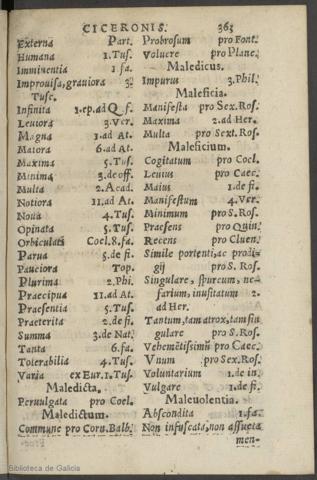 CICERONIS. 363
Externa Part.
Humana 1.Tus.
Imminentia 1.fa.
Improuisa, grauiora 3.
Tusc.
Infinita 1.ep.ad Q.f.
Leuiora 3.Ver.
Magna 1.ad At.
Maiora 6.ad At.
Maxima 5.Tus.
Minima 3.de off.
Multa 2.Acad.
Notiora 11.ad At.
Noua 4.Tus.
Opinata 5.Tus.
Orbiculati Coel.8.fa.
Parua 5.de fi.
Pauciora Top.
Plurima 2.Phi.
Praecipua 11.ad At.
Praesentia 5.Tus.
Praeterita 2.de fi.
Summa 3.de Nat.
Tanta 6.fa.
Tolerabilia 4.Tus.
Varia ex Eur.1.Tus.
Maledicta.
Peruulgata pro Coel.
Maledictum.
Commune pro Corn.Balb.
Probrosum pro Font.
Volucre pro Planc.
Maledicus.
Impurus 3.Phil.
Maleficia.
Manifesta pro Sex.Ros.
Maxima 2.ad Her.
Multa pro Sext.Ros.
Maleficium.
Cogitatum pro Coel.
Leuius pro Caec.
Maius 1.de fi.
Manifestum 4.Ver.
Minimum pro S.Ros.
Praesens pro Quin.
Recens pro Cluen.
Simile portenti, ac prodi-
gij pro S.Ros.
Singulare, spurcum, ne-
farium, inusitatum 2.
ad Her.
Tantum, tam atrox, tam sin
gulare pro S.Ros.
Vehemētissimū pro Caec.
Vnum pro Sex.Ros.
Voluntarium 1.de in.
Vulgare 1.de fi.
Maleuolentia.
Abscondita 1.fa.
Non infuscata, non assueta
men-
Biblioteca de Galicia